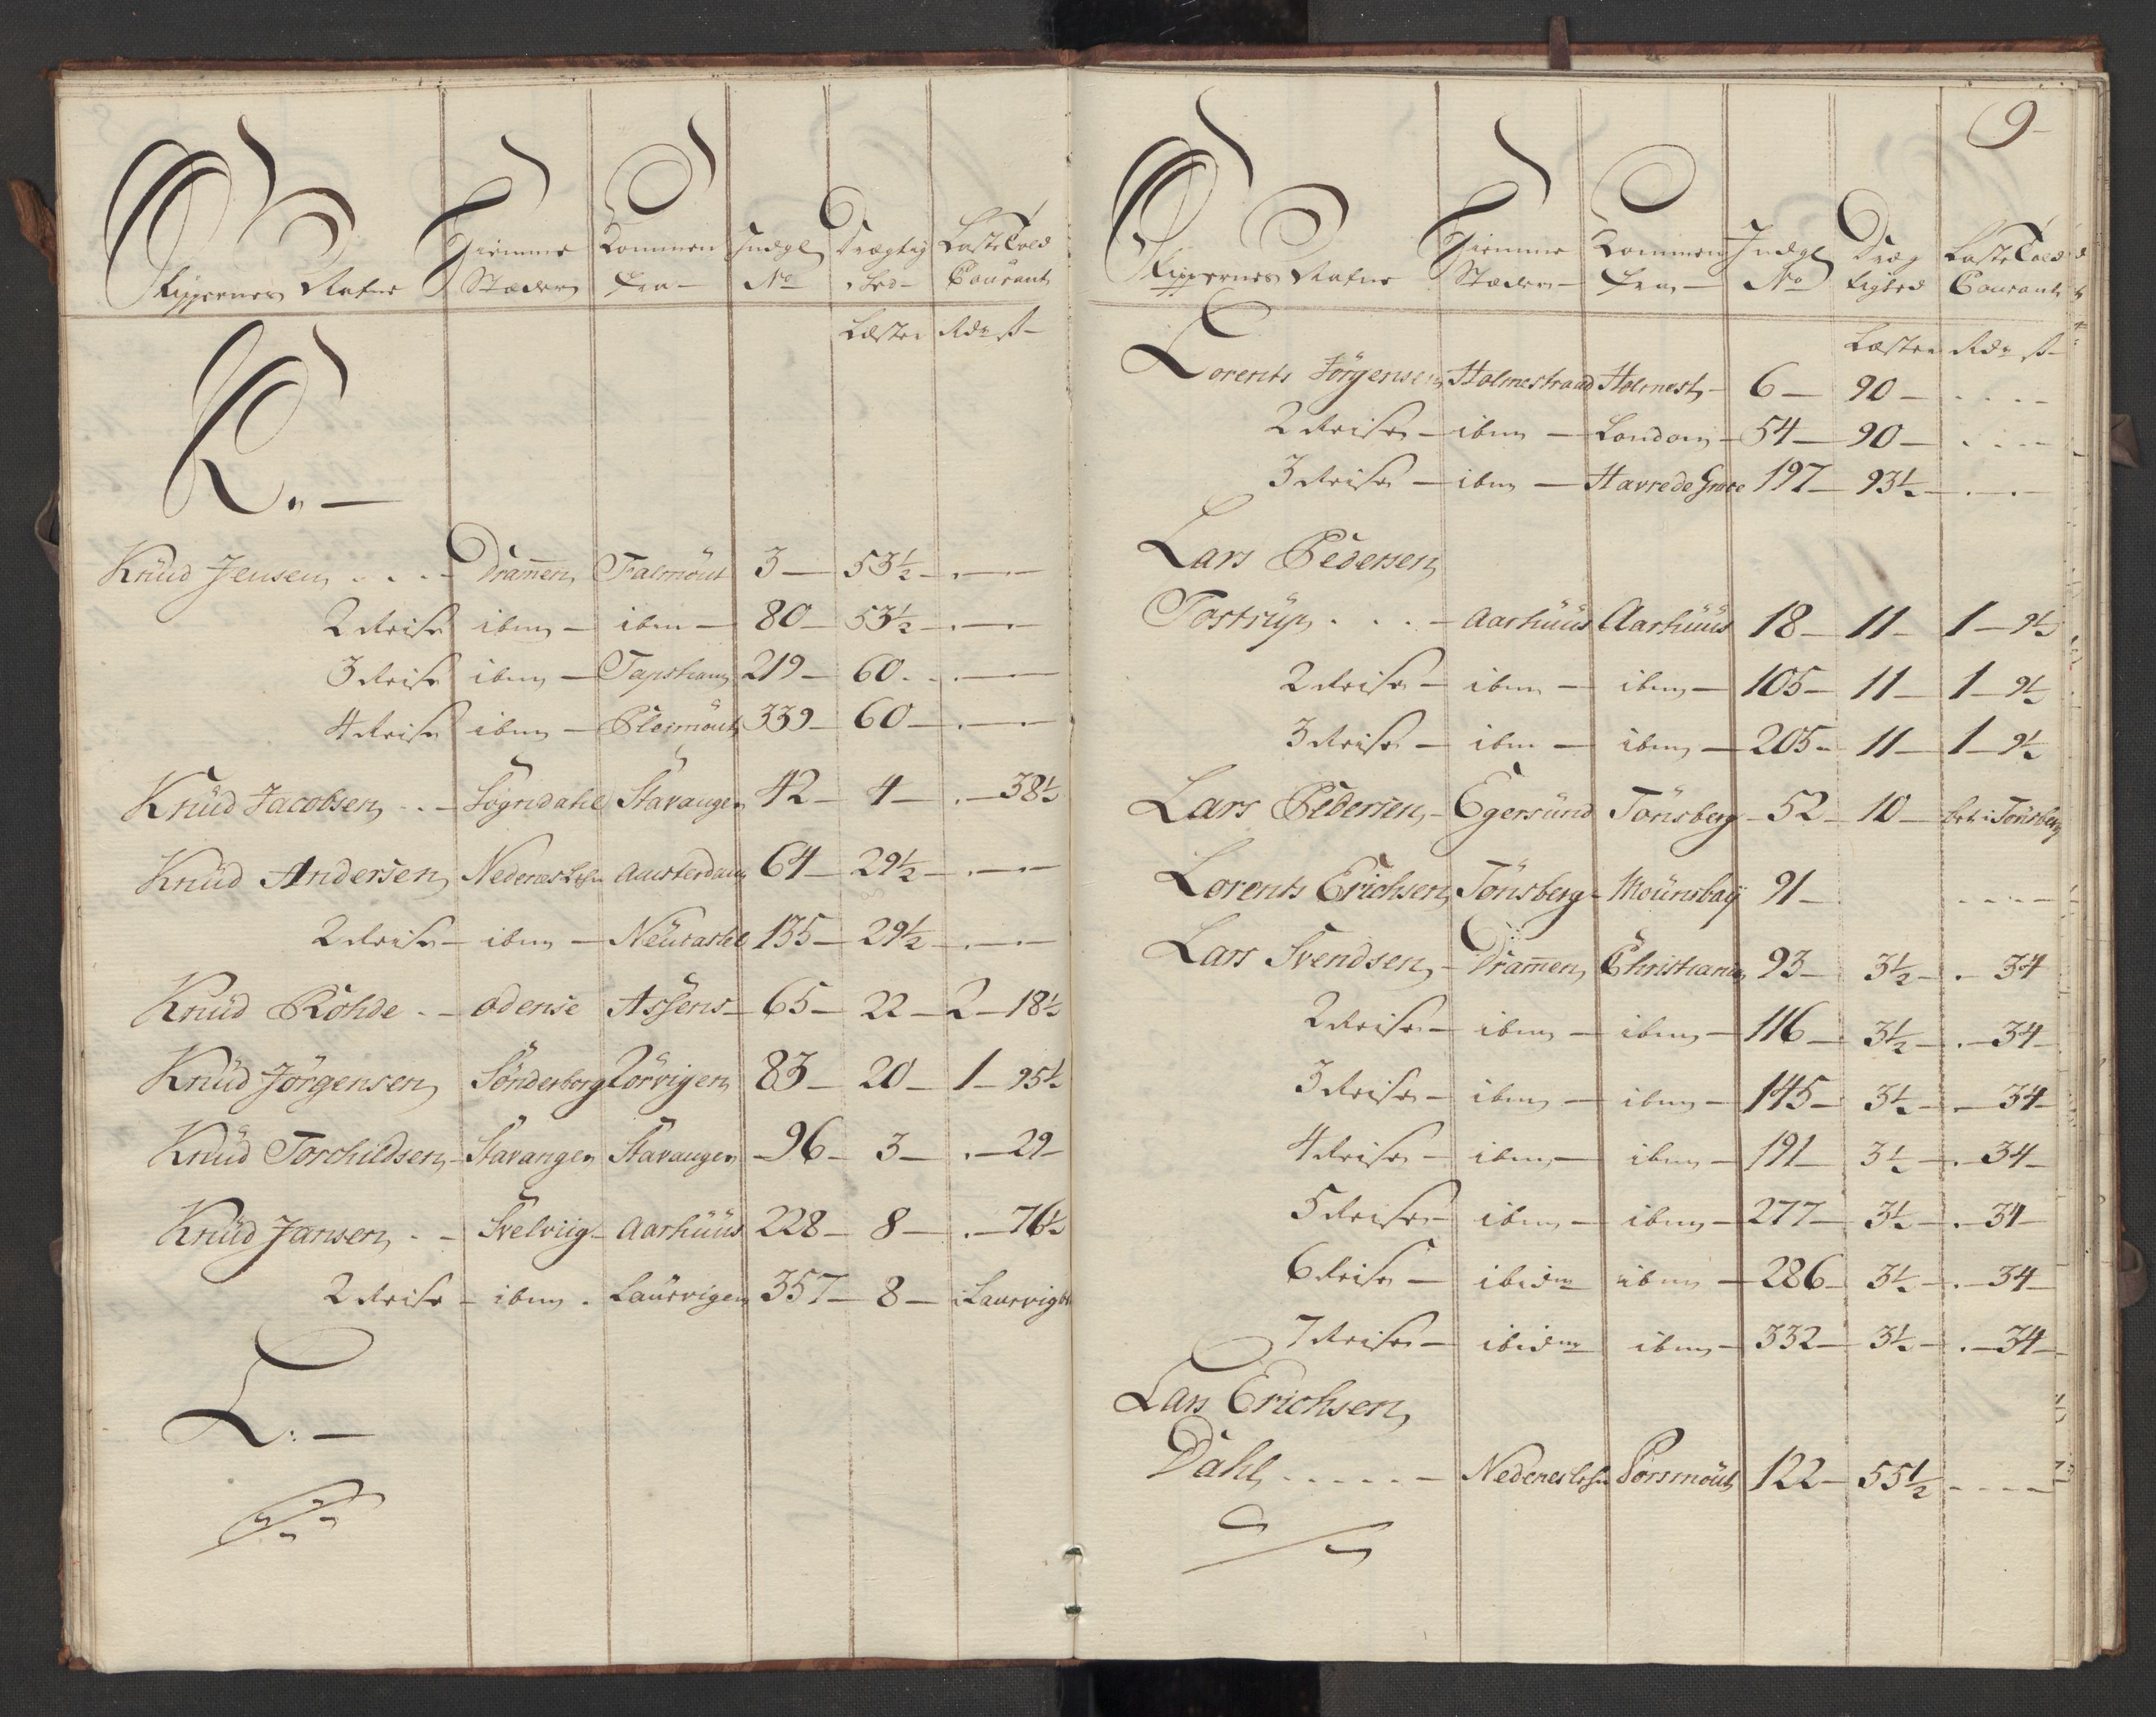 Skippernes Nafne | Hiemme Stæder | Kommen Fra | Indgl No | Drægtig hed | Laste Told Courant
Læster | Rdr ß
K.
Knüd Jensen | Dramen | Falmöut | 3 | 53½ | . —
2 Reise | ibm | ibm | 80 | 53½ | . —
3 Reise | ibm | Tapsham | 219 | 60 | . —
4 Reise | ibm | Pleimöut | 339 | 60 | . —
Knüd Jacobsen | Sögndahl | Stavanger | 42 | 4 | . — 38½
Knüd Andersen | Nedenes Lehn | Amsterdam | 64 | 29½ | . —
2 Reise | ibm | Neücastel | 135 | 29½ | . —
Knüd Rohde | Odense | Assens | 65 | 22 | 2 — 18½
Knüd Jörgensen | Sönderborg | Lörvigen | 83 | 20 | 1 — 95½
Knüd Torchildsen | Stavanger | Stavanger | 96 | 3 | . — 29
Knüd Jansen | Svelviig | Aarhüüs | 228 | 8 | . — 76½
2 Reise | ibm | Laürvigen | 357 | 8 | i Laurvig
L.
9
Skippernes Nafne | Hiemme Stæder | Kommen Fra | Indgl No | Dræg tighed | Laste Told Courant
Læster | Rdr ß
Lorents Jörgensen | Holmestrand | Holmest | 6 | 90 | . . . .
2 Reise | ibm | London | 54 | 90 | . . . .
3 Reise | ibm | Havre de Grace | 197 | 93½ | . — . —
Lars Pedersen
Tostrüp | Aarhüüs | Aarhüüs | 18 | 11 | 1 — 9½
2 Reise | ibm | ibm | 105 | 11 | 1 — 9½
3 Reise | ibm | ibm | 205 | 11 | 1 — 9½
Lars Pedersen | Egersünd | Tönsberg | 52 | 10 | bet: i Tönsberg
Lorents Erichsen | Tönsberg | Moünsbaÿ | 91 | . . . .
Lars Svendsen | Dramen | Christiania | 93 | 3½ | . — 34
2 Reise | ibm | ibm | 116 | 3½ | . — 34
3 Reise | ibm | ibm | 145 | 3½ | . — 34
4 Reise | ibm | ibm | 191 | 3½ | . — 34
5 Reise | ibm | ibm | 277 | 3½ | . — 34
6 Reise | ibidm | ibm | 286 | 3½ | . — 34
7 Reise | ibidm | ibm | 332 | 3½ | . — 34
Lars Erichsen
Dahl | Nedenes Lehn | Porsmöut | 122 | 55½ | . . . .